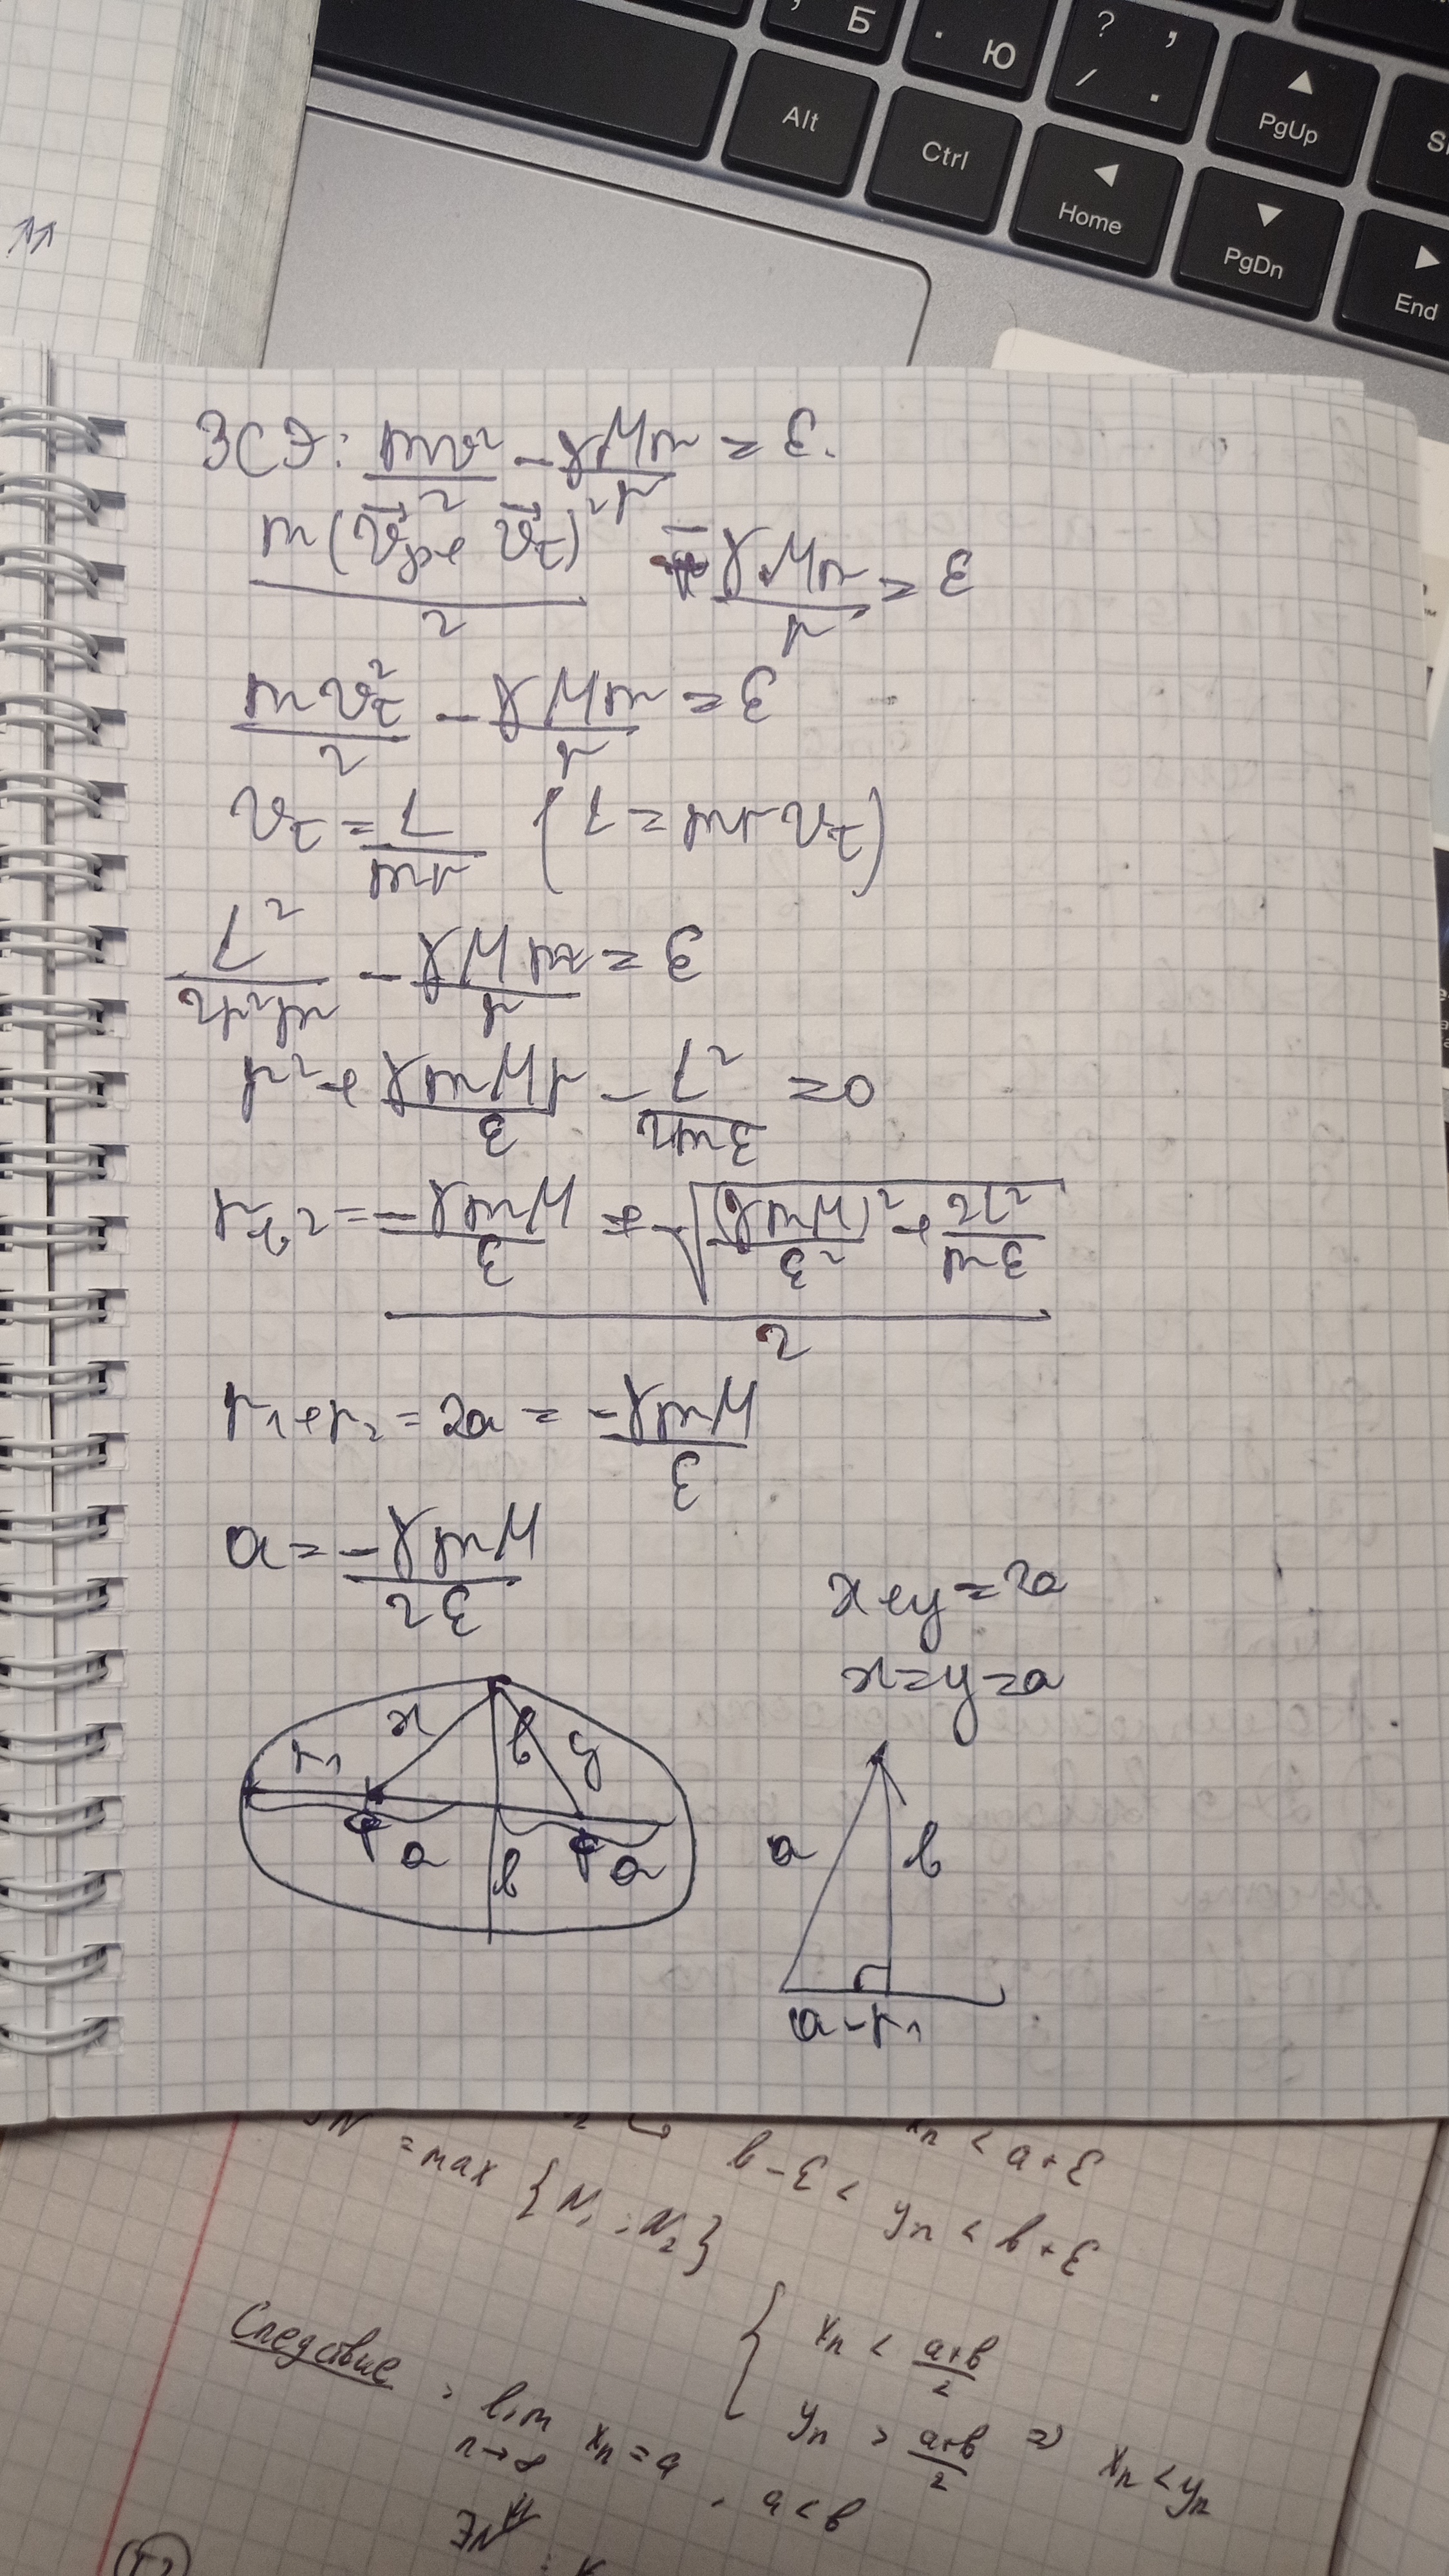 , Б
. Ю
? ,
/ .
Alt
Ctrl
PgUp
Home
PgDn
End
ЗСЭ: mv²/2 - γMm/r = ε.
m(v⃗р + v⃗τ)²/2 - γMm/r = ε
mvτ²/2 - γMm/r = ε
vτ = L/mr (L = mrvτ)
L²/2r²m - γMm/r = ε
r² + γmMr/ε - L²/2mε = 0
r1,2 = (-γmM/ε ± √((γmM)²/ε² + 2L²/mε))/2
r1 + r2 = 2a = -γmM/ε
a = -γmM/2ε
x + y = 2a
x = y = a
x
r1
b
y
φ
a
b
φ
a
a
b
a - r1
xn < a+ε
= max {N1; N2}
b-ε < yn < b+ε
Следствие: lim n→∞ xn = a, a < b
{ xn < a+b/2
yn > a+b/2 ⇒ xn < yn